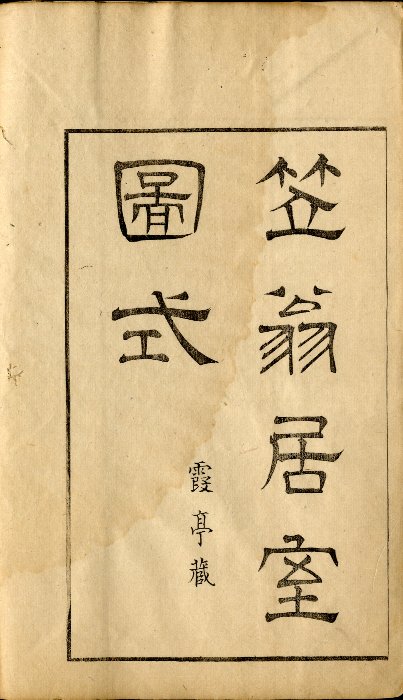 笠翁居室
圖式
霞亭藏